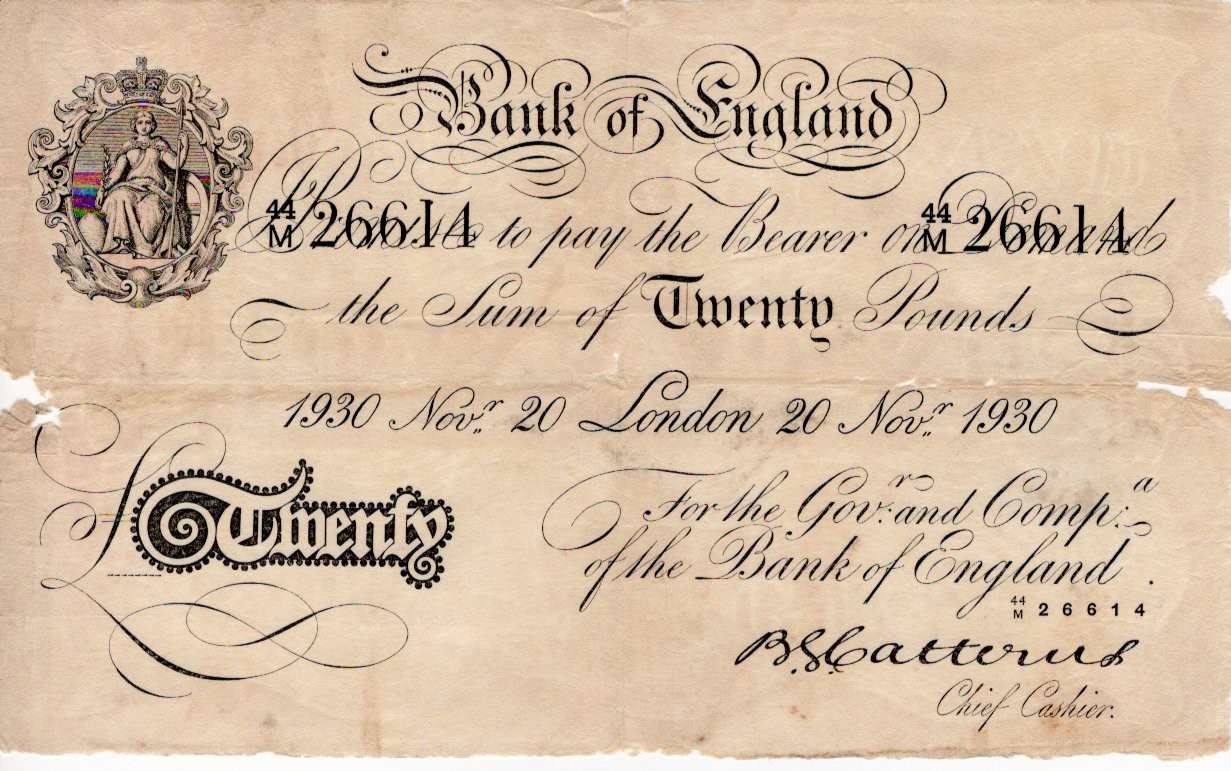 Bank of England
44
M 26614 I Promise to pay the Bearer on Demand 44
M 26614
the Sum of Twenty Pounds
1930 Novr. 20 London 20 Novr. 1930
£Twenty
For the Govr. and Compa.
of the Bank of England.
44
M 26614
B.G.Catterns
Chief Cashier.